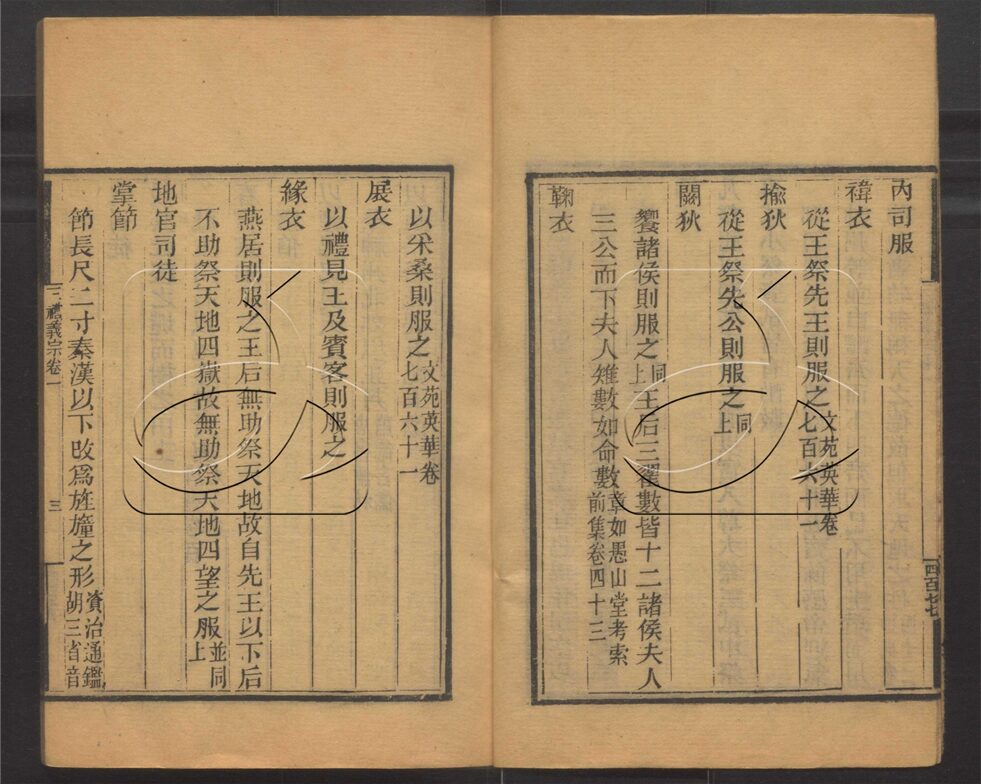 內司服
褘衣
從王祭先王則服之文苑英華卷七百六十一
揄狄
從王祭先公則服之同上
闕狄
饗諸侯則服之同上王后三翟數皆十二諸侯夫人
三公而下夫人雉數如命數章如愚山堂考索前集卷四十三
鞠衣
四百七七
以采桑則服之文苑英華卷七百六十一
展衣
以禮見王及賓客則服之
緣衣
燕居則服之王后無助祭天地故自先王以下后
不助祭天地四嶽故無助祭天地四望之服並同上
地官司徒
掌節
節長尺二寸秦漢以下改爲旌幢之形資治通鑑胡三省音
三禮義宗卷一
三